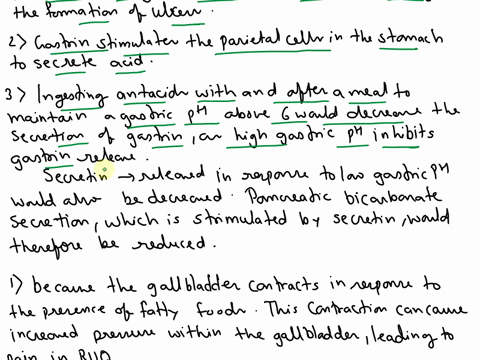 the formation of ulcers.
2) Gastrin stimulates the parietal cells in the stomach
to secrete acid.
3) Ingesting antacids with and after a meal to
maintain a gastric pH above 6 would decrease the
secretion of gastrin, as high gastric pH inhibits
gastrin release.
Secretin → released in response to low gastric pH
would also be decreased. Pancreatic bicarbonate
secretion, which is stimulated by secretin, would
therefore be reduced.
1) because the gallbladder contracts in response to
the presence of fatty foods. This contraction can cause
increased pressure within the gallbladder, leading to
pain in RUQ